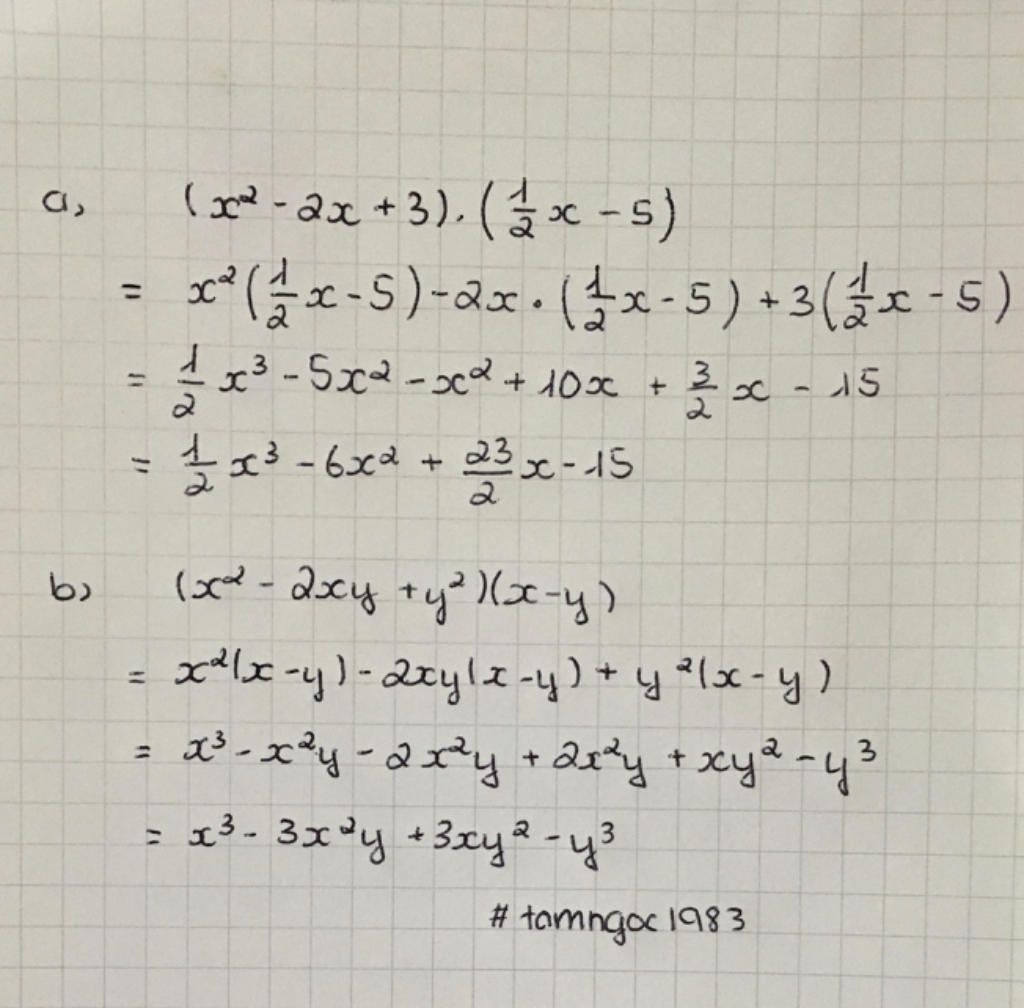 a, (x² - 2x + 3) . (1/2 x - 5)
= x² (1/2 x - 5) - 2x . (1/2 x - 5) + 3 (1/2 x - 5)
= 1/2 x³ - 5x² - x² + 10x + 3/2 x - 15
= 1/2 x³ - 6x² + 23/2 x - 15
b, (x² - 2xy + y²)(x - y)
= x²(x - y) - 2xy(x - y) + y²(x - y)
= x³ - x²y - 2x²y + 2x²y + xy² - y³
= x³ - 3x²y + 3xy² - y³
# tamngoc 1983